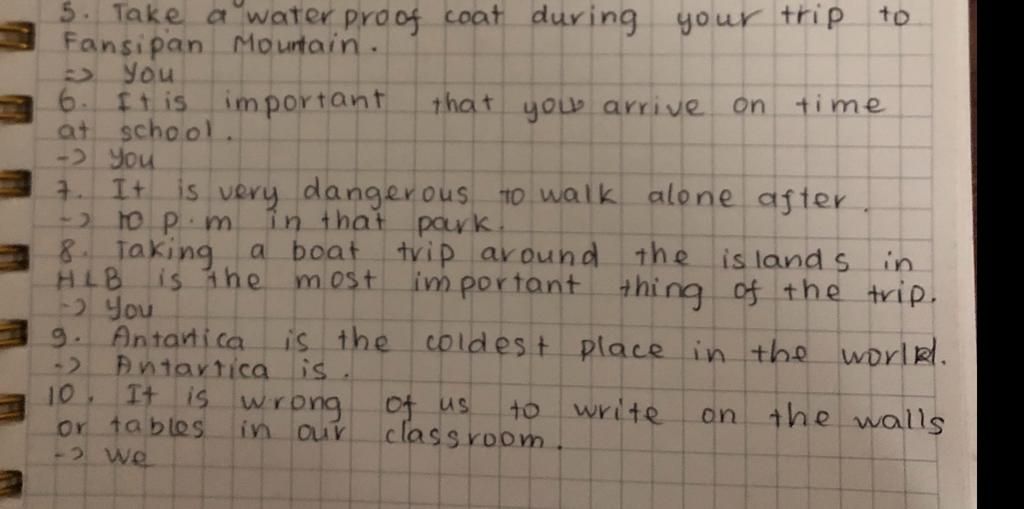 5. Take a waterproof coat during your trip to
Fansipan Mountain.
=> You
6. It is important that you arrive on time
at school.
-> You
7. It is very dangerous to walk alone after.
-> 10 p.m in that park.
8. Taking a boat trip around the islands in
HLB is the most important thing of the trip.
-> You
9. Antartica is the coldest place in the world.
-> Antartica is.
10. It is wrong of us to write on the walls
or tables in our classroom.
-> We